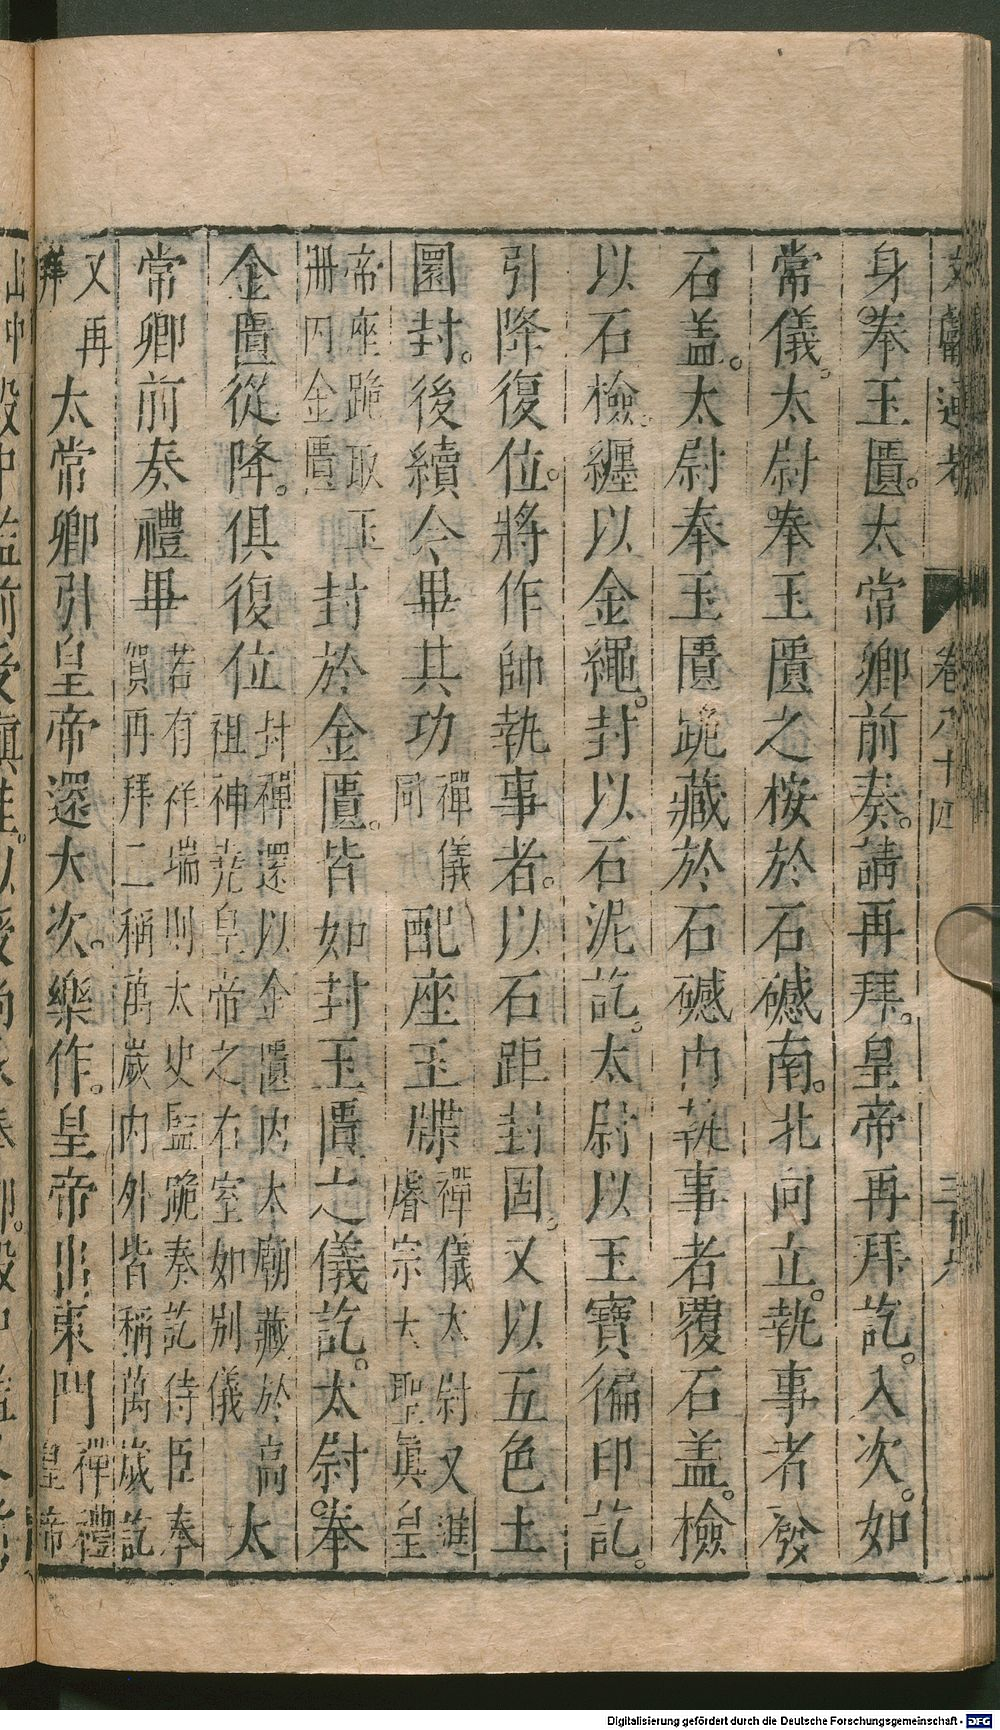 文獻通考 卷八十四
身奉玉匱。太常卿前奏。請再拜。皇帝再拜訖。入次。如
常儀。太尉奉玉匱之桉於石𥖁南。北向立。執事者發
石盖。太尉奉玉匱跪藏於石𥖁內執事者覆石盖。檢
以石檢。纏以金繩。封以石泥訖。太尉以玉寶徧印訖。
引降復位。將作帥執事者。以石距封固。又以五色土
圜封。後續令畢其功禪儀同配座玉牒禪儀太尉又進睿宗大聖眞皇
帝座跪取玉冊內金匱封於金匱。皆如封玉匱之儀訖。太尉奉
金匱從降。俱復位封禪還以金匱內太廟藏於高祖神堯皇帝之右室如別儀太
常卿前奏禮畢若有祥瑞則太史監跪奏訖侍臣奉賀再拜二稱萬歲內外皆稱萬歲訖
又再拜太常卿引皇帝還大次。樂作。皇帝出東門禪禮皇帝
Digitalisierung gefördert durch die Deutsche Forschungsgemeinschaft - DFG